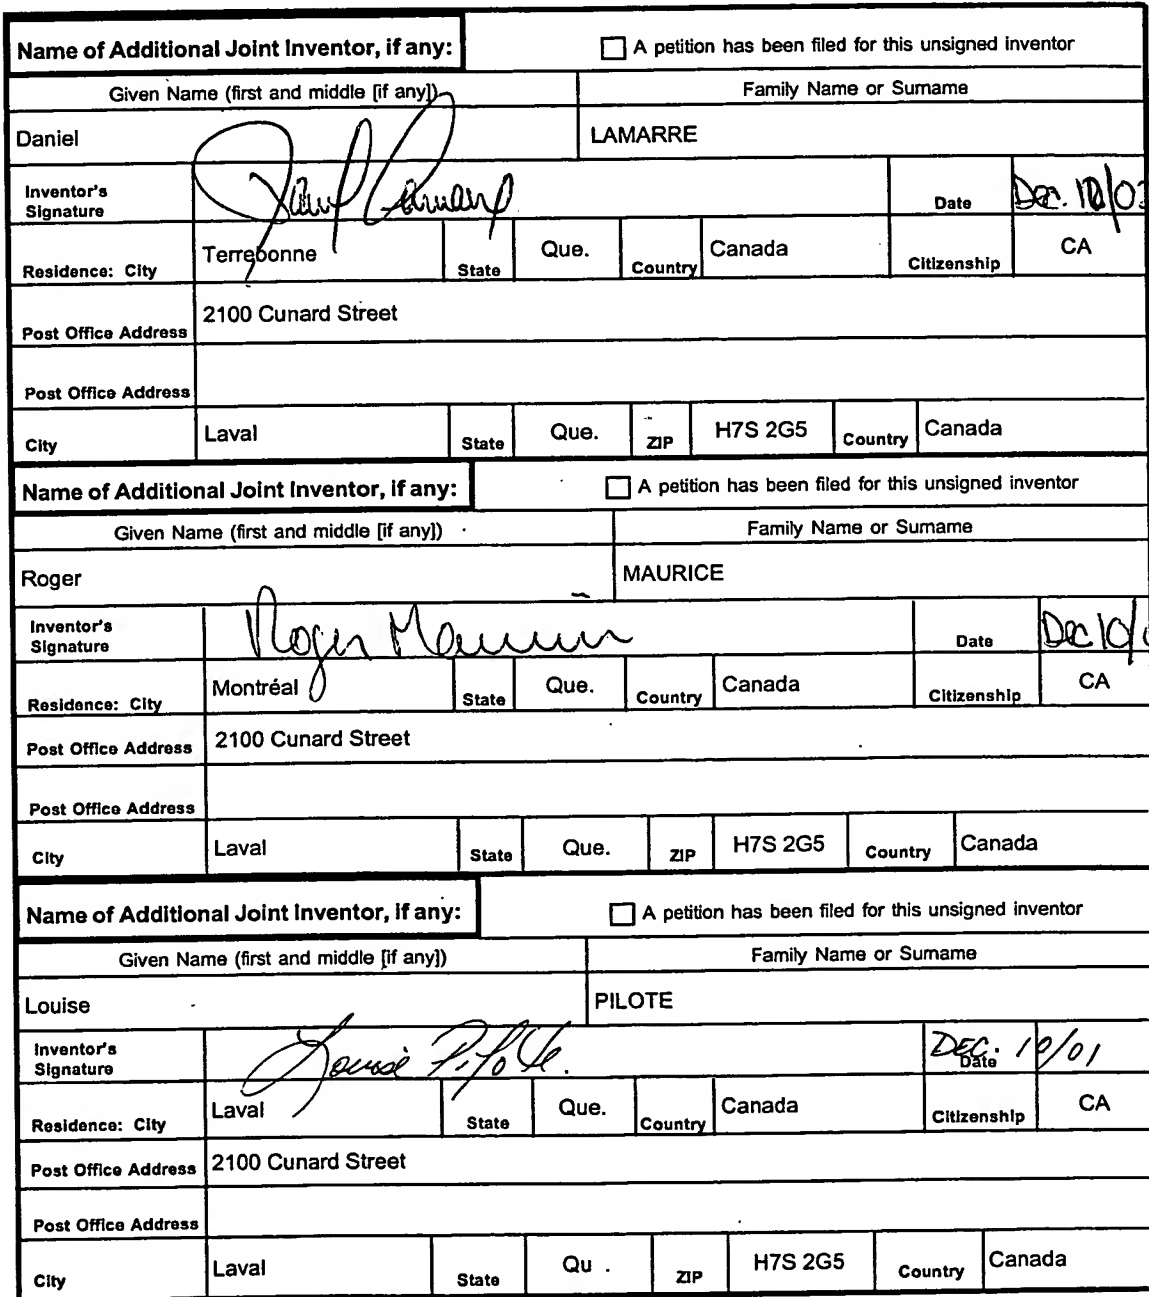 Name of Additional Joint Inventor, if any: A petition has been filed for this unsigned inventor
Given Name (first and middle [if any]) Family Name or Surname
Daniel LAMARRE
Inventor's Signature Daniel Lamarre Date Dec. 10/0
Residence: City Terrebonne State Que. Country Canada Citizenship CA
Post Office Address 2100 Cunard Street
Post Office Address
City Laval State Que. ZIP H7S 2G5 Country Canada
Name of Additional Joint Inventor, if any: A petition has been filed for this unsigned inventor
Given Name (first and middle [if any]) Family Name or Surname
Roger MAURICE
Inventor's Signature Roger Maurice Date Dec 10/
Residence: City Montréal State Que. Country Canada Citizenship CA
Post Office Address 2100 Cunard Street
Post Office Address
City Laval State Que. ZIP H7S 2G5 Country Canada
Name of Additional Joint Inventor, if any: A petition has been filed for this unsigned inventor
Given Name (first and middle [if any]) Family Name or Surname
Louise PILOTE
Inventor's Signature Louise Pilote. Date DEC. 10/01
Residence: City Laval State Que. Country Canada Citizenship CA
Post Office Address 2100 Cunard Street
Post Office Address
City Laval State Qu . ZIP H7S 2G5 Country Canada